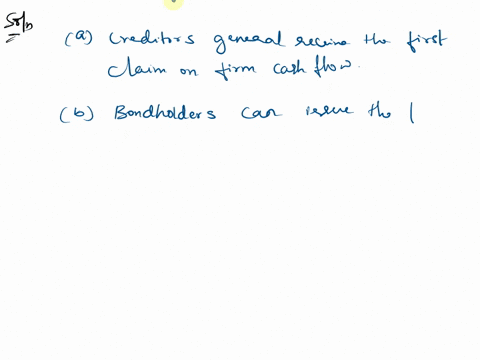 Soln
(a) Creditors general receive the first
claim on firm cash flow.
(b) Bondholders can issue the